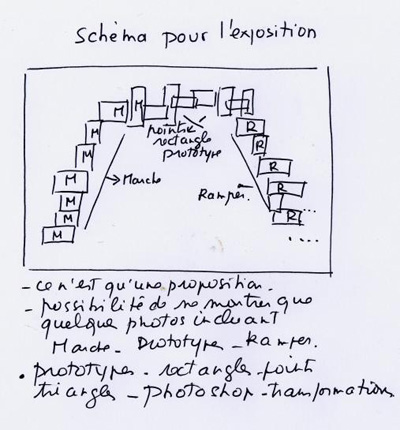 Schéma pour l'exposition
M M M M M M M M
pointre
rectangle
prototype
Marche
Ramper.
R
R
R
R
R ...
....
- ce n'est qu'une proposition.
- possibilité de ne montrer que
quelque photos incluant
Marche - Prototype - Ramper.
• prototypes - rectangles - point
triangles - photoshop - transformations